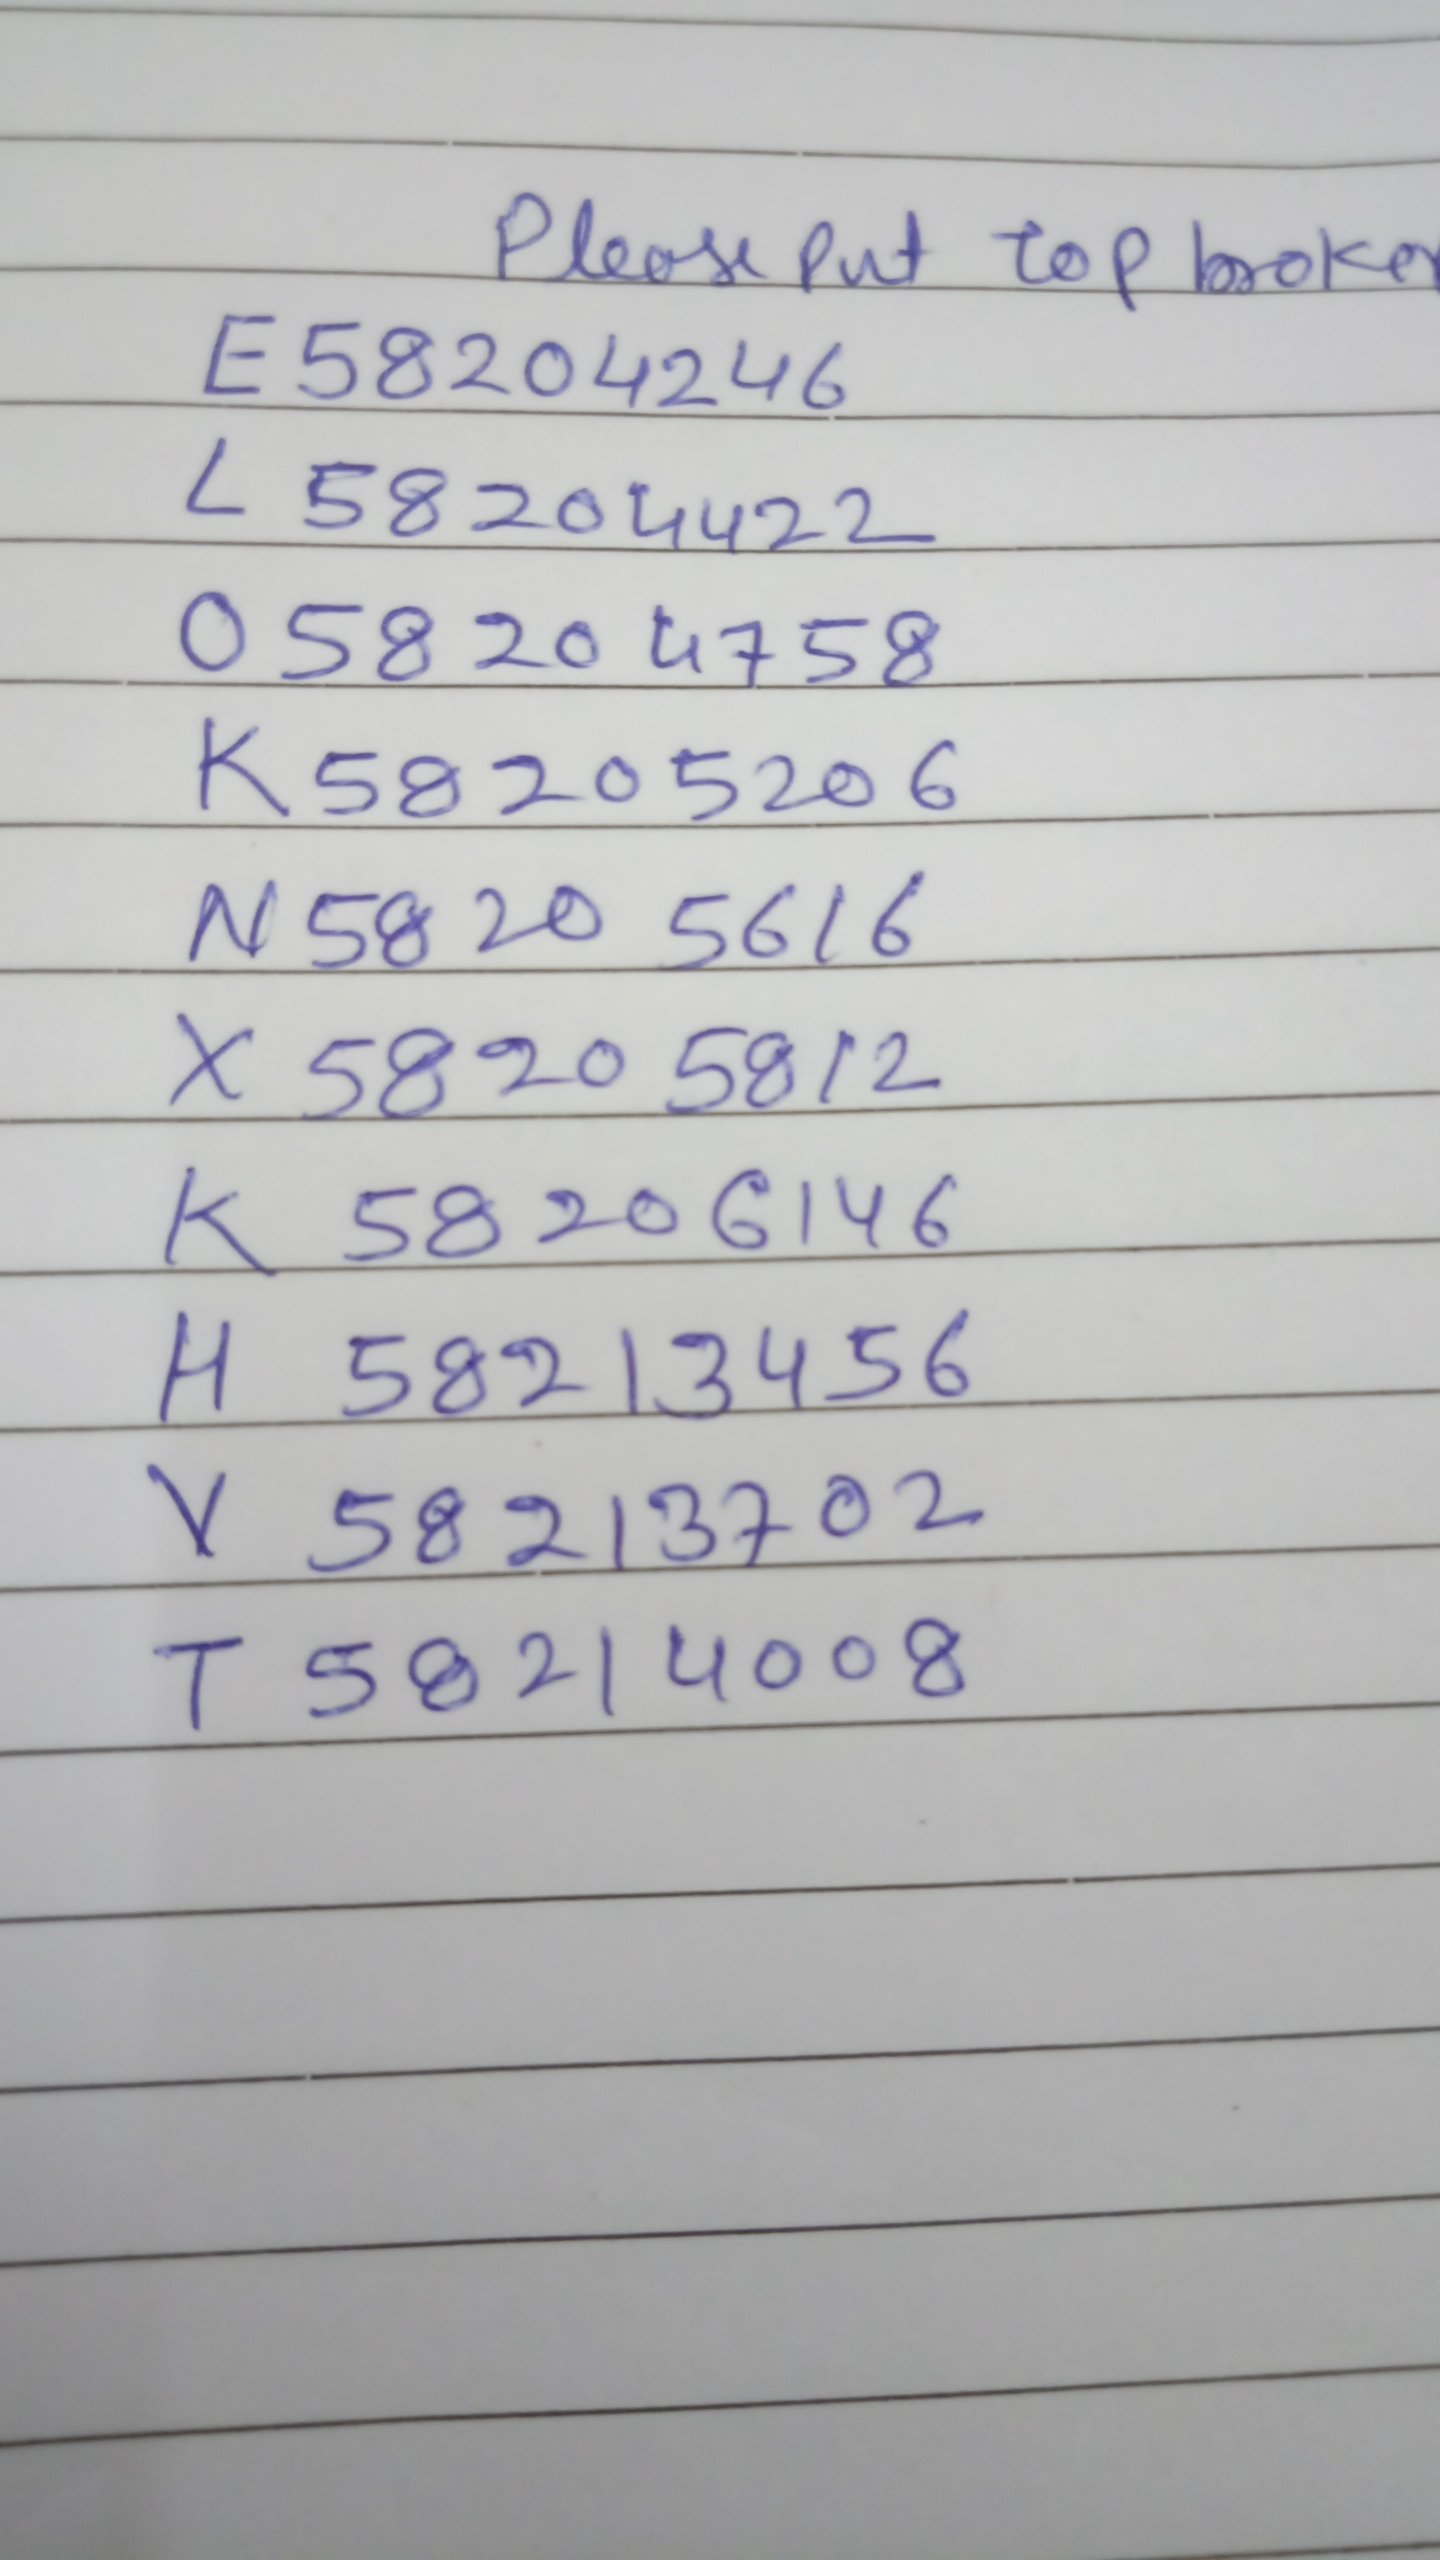 Please put top broker
E58204246
L 58204422
O 58204758
K 58205206
N 58205616
X 58205812
K 58206146
H 58213456
V 58213702
T 58214008